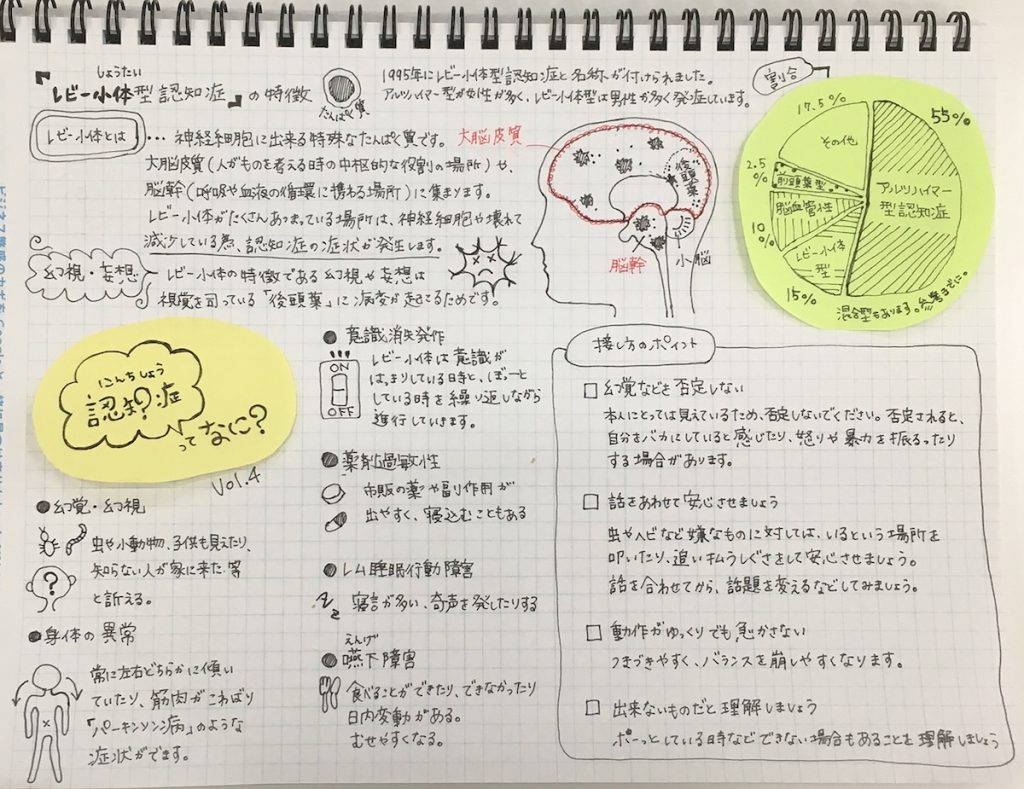 しょうたい
『レビー小体型認知症』の特徴
たんぱく質
1995年にレビー小体型認知症と名称が付けられました。
アルツハイマー型が女性が多く、レビー小体型は男性が多く発症しています。
レビー小体とは
… 神経細胞に出来る特殊なたんぱく質です。
大脳皮質(人がものを考える時の中枢的な役割の場所)や、
脳幹(呼吸や血液の循環に携わる場所)に集まります。
レビー小体がたくさんあつまっている場所は、神経細胞や壊れて
減少している為、認知症の症状が発生します。
幻視・妄想
レビー小体の特徴である幻視や妄想は
視覚を司っている「後頭葉」に病変が起きてるためです。
大脳皮質
後頭葉
脳幹
小脳
割合
17.5%
その他
55%
アルツハイマー
型認知症
2.5
%
前頭葉型
脳血管性
10
%
レビー小体
型
15%
混合型もあります。参考までに。
にんちしょう
認知?症
ってなに?
Vol.4
●幻覚・幻視
虫や小動物、子供も見えたり、
?
知らない人が家に来た等
と訴える。
●身体の異常
常に左右どちらかに傾い
ていたり、筋肉がこわばり
「パーキンソン病」のような
症状がでます。
●意識消失発作
ON
OFF
レビー小体は意識が
はっきりしている日時と、ぼーっと
している時を繰り返しながら
進行していきます。
●薬剤過敏性
市販の薬や副作用が
出やすく、寝込むこともある
●レム睡眠行動障害
zz
寝言が多い、奇声を発したりする
えんげ
●嚥下障害
食べることができたり、できなかったり
日内変動がある。
むせやすくなる。
接し方のポイント
□ 幻覚などを否定しない
本人にとっては見えているため、否定しないでください。否定されると、
自分をバカにしていると感じたり、怒りや暴力を振るったり
する場合があります。
□ 話をあわせて安心させましょう
虫やヘビなど嫌なものに対しては、いるという場所を
叩いたり、追い払うしぐさをして安心させましょう。
話を合わせてから、話題を変えるなどしてみましょう。
□ 動作がゆっくりでも急かさない
つまづきやすく、バランスを崩しやすくなります。
□ 出来ないものだと理解しましょう
ボーっとしている時などできない場合もあることを理解しましょう